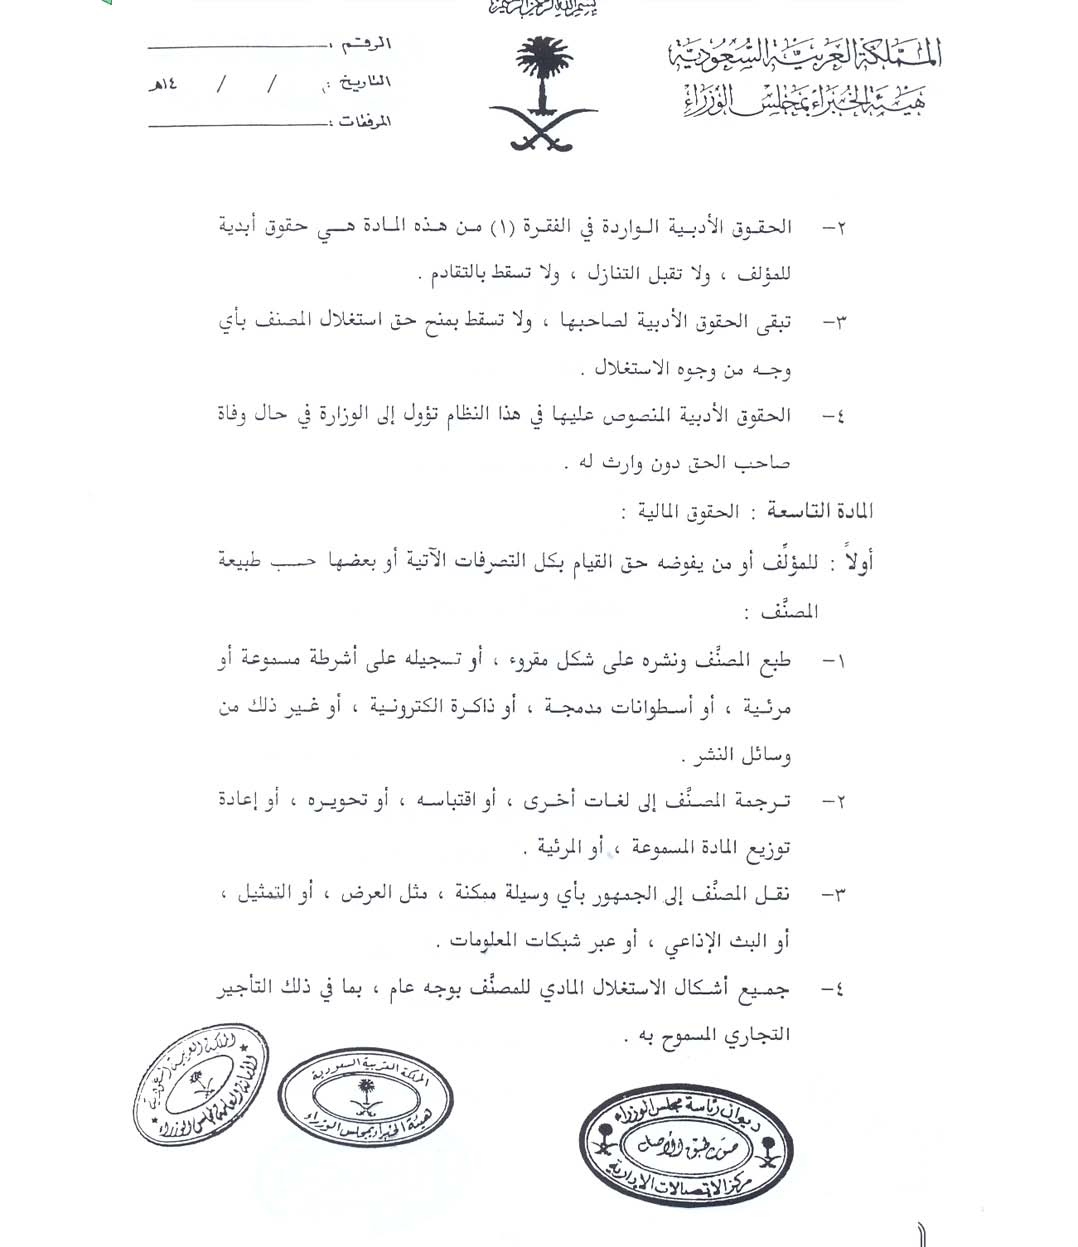 بسم الله الرحمن الرحيم
المملكة العربية السعودية
هيئة الخبراء بمجلس الوزراء
الرقم :
التاريخ : / / ١٤هـ
المرفقات :
٢– الحقوق الأدبية الواردة في الفقرة (١) من هذه المادة هي حقوق أبدية
للمؤلف ، ولا تقبل التنازل ، ولا تسقط بالتقادم .
٣– تبقى الحقوق الأدبية لصاحبها ، ولا تسقط بمنح حق استغلال المصنف بأي
وجه من وجوه الاستغلال .
٤– الحقوق الأدبية المنصوص عليها في هذا النظام تؤول إلى الوزارة في حال وفاة
صاحب الحق دون وارث له .
المادة التاسعة : الحقوق المالية :
أولاً : للمؤلِّف أو من يفوضه حق القيام بكل التصرفات الآتية أو بعضها حسب طبيعة
المصنَّف :
١– طبع المصنَّف ونشره على شكل مقروء ، أو تسجيله على أشرطة مسموعة أو
مرئية ، أو أسطوانات مدمجة ، أو ذاكرة الكترونية ، أو غير ذلك من
وسائل النشر .
٢– ترجمة المصنَّف إلى لغات أخرى ، أو اقتباسه ، أو تحويره ، أو إعادة
توزيع المادة المسموعة ، أو المرئية .
٣– نقل المصنَّف إلى الجمهور بأي وسيلة ممكنة ، مثل العرض ، أو التمثيل ،
أو البث الإذاعي ، أو عبر شبكات المعلومات .
٤– جميع أشكال الاستغلال المادي للمصنَّف بوجه عام ، بما في ذلك التأجير
التجاري المسموح به .
المملكة العربية السعودية
الأمانة العامة لمجلس الوزراء
المملكة العربية السعودية
هيئة الخبراء بمجلس الوزراء
ديوان رئاسة مجلس الوزراء
صورة طبق الأصل
مركز الاتصالات الإدارية